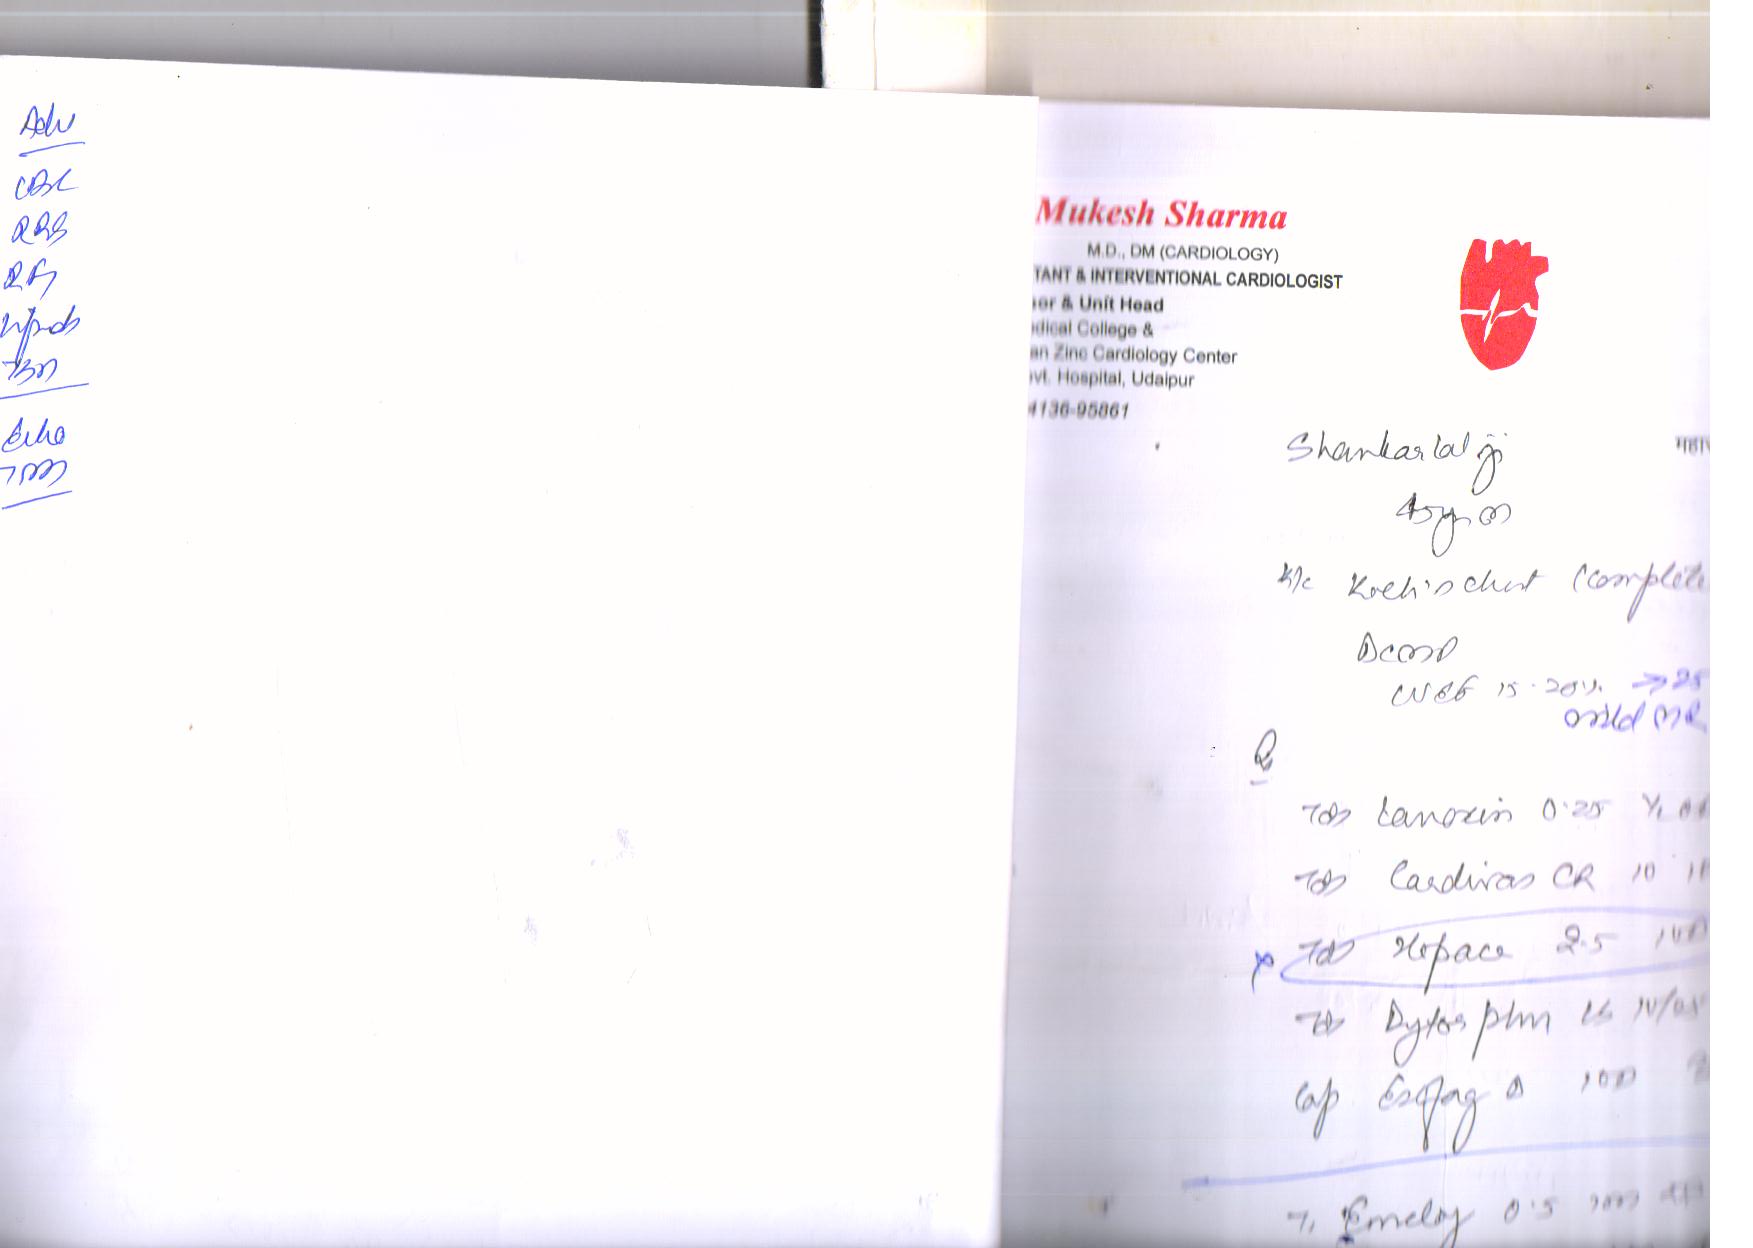 Adv
CBC
RBS
RFT
Lipids
TSH
Echo
Mukesh Sharma
M.D., DM (CARDIOLOGY)
TANT & INTERVENTIONAL CARDIOLOGIST
or & Unit Head
dical College &
an Zinc Cardiology Center
vt. Hospital, Udaipur
4136-95861
Shankarlal ji
K/c Koch's chest (complete
DCMP
LVEF 15-20% → 25
mild MR
Tab Lanoxin 0.25
Tab Cardivas CR 10
Tab Hopace 2.5 1OD
Tab Dytor plus LS 10/25
Cap Esofag D 1OD
T.